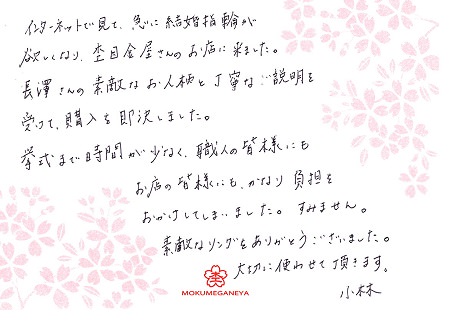 インターネットで見て、急に結婚指輪が
欲しくなり、杢目金屋さんのお店に来ました。
長澤さんの素敵なお人柄と丁寧なご説明を
受けて、購入を即決しました。
挙式まで時間が少なく、職人の皆様にも
お店の皆様にも、かなり負担を
おかけしてしまいました。すみません。
素敵なリングをありがとうございました。
大切に使わせて頂きます。
小林
MOKUMEGANEYA